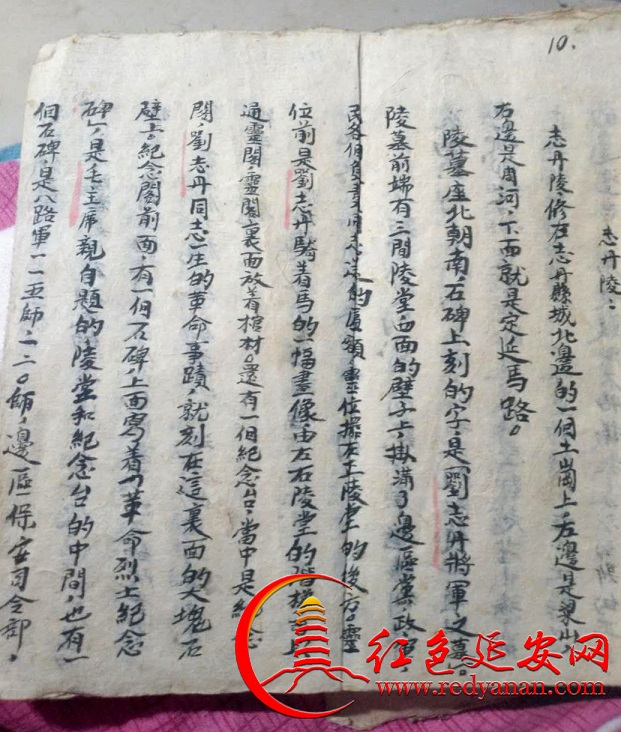 10.
志丹陵：
志丹陵修在志丹縣城北邊的一个土崗上，左邊是梁山，
右邊是周河，下面就是定延馬路。
陵墓座北朝南，石碑上刻的字，是「劉志丹將軍之墓」。
陵墓前端有三間陵堂，四面的壁子上，掛滿了邊區黨、政、軍、
民各個負責同志的匾額，靈位擺在正陵堂的後方。靈
位前是劉志丹騎着馬的一幅畫像，由左右陵堂的階梯
通靈閣，靈閣裏面放着棺材。還有一個紀念台，當中是紀念
閣，劉志丹同志生的革命事蹟，就刻在這裏面的大塊石
壁上。紀念閣前面，有一個石碑，上面寫着「革命烈士紀念
碑」，是毛主席親自題的，陵堂和紀念台的中間，也有一
個石碑，是八路軍一一五師，一二〇師，邊區保安司令部，
红色延安网
www.redyanan.com